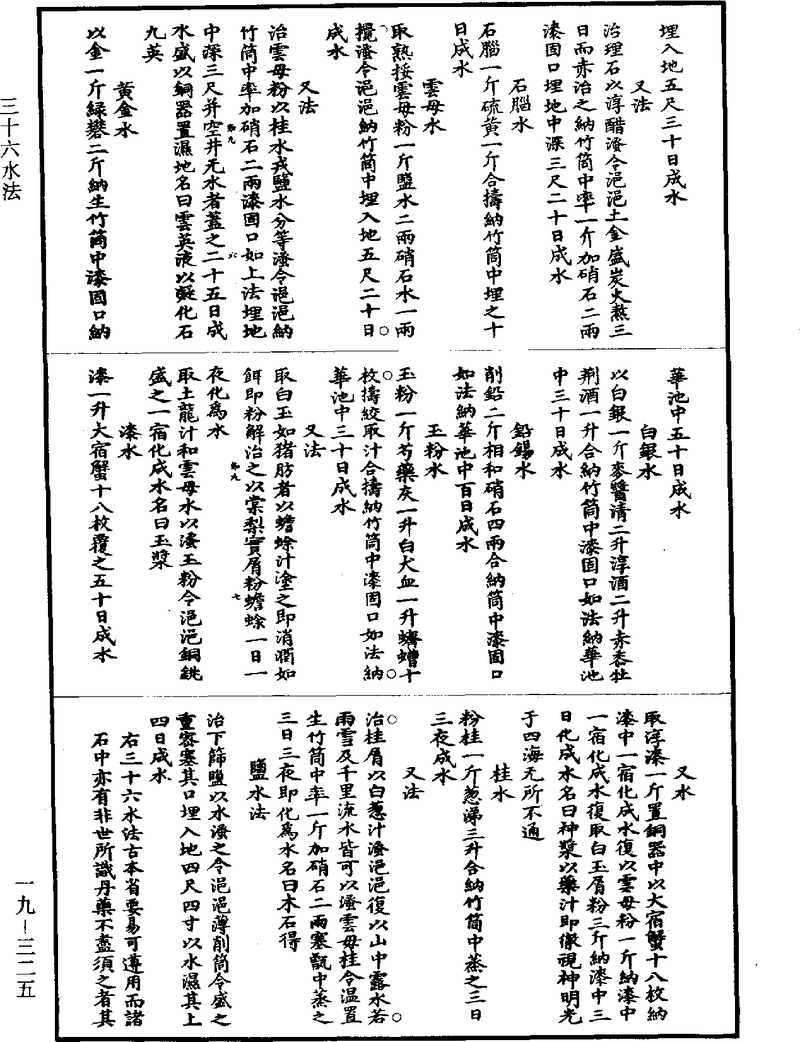 埋入地五尺三十日成水
又法
治理石以淳醋溲令浥浥土釜盛炭火蒸三
日而赤治之納竹筒中率一斤加硝石二兩
漆固口埋地中深三尺二十日成水
石腦水
石腦一斤硫黃一斤合擣納竹筒中埋之十
日成水
雲母水
取熟挼雲母粉一斤鹽水二兩硝石水一兩
攪溲令浥浥納竹筒中埋入地五尺二十日
成水
又法
治雲母粉以桂水戎鹽水分等溲令浥浥納
竹筒中率加硝石二兩漆固口如上法埋地
中深三尺并空井无水者蓋之二十五日成
水盛以銅器置濕地名曰雲英液以凝化石
九英
黃金水
以金一斤綠礬二斤納生竹筒中漆固口納
華池中五十日成水
白銀水
以白銀一斤麥醬清二升淳酒二升赤黍牡
荊酒一升合納竹筒中漆固口如法納華池
中三十日成水
鉛錫水
削鉛二斤相和硝石四兩合納筒中漆固口
如法納華池中百日成水
玉粉水
玉粉一斤芍藥灰一升白犬血一升蠐螬十
枚擣絞取汁合擣納竹筒中漆固口如法納
華池中三十日成水
又法
取白玉如猪肪者以蟾蜍汁塗之即消潤如
餌即粉解治之以棠梨實屑粉蟾蜍一日一
夜化為水
取土龍汁和雲母水以溲玉粉令浥浥銅銚
盛之一宿化成水名曰玉漿
漆水
漆一升大宿蟹十八枚覆之五十日成水
又水
取淳漆一斤置銅器中以大宿蟹十八枚納
漆中一宿化成水復以雲母粉一斤納漆中
一宿化成水復取白玉屑粉三斤納漆中三
日化成水名曰神漿以藥汁即徹視神明光
于四海无所不通
桂水
粉桂一斤葱涕三升合納竹筒中蒸之三日
三夜成水
又法
治桂屑以白葱汁溲浥浥復以山中露水若
雨雪及千里流水皆可以溲雲母桂令温置
生竹筒中率一斤加硝石二兩塞甑中蒸之
三日三夜即化為水名曰木石得
鹽水法
治下篩鹽以水溲之令浥浥薄削筒令盛之
重密塞其口埋入地四尺四寸以水濕其上
四日成水
右三十六水法古本省要易可遵用而諸
石中亦有非世所識丹藥不盡須之者其
三十六水法
一九–三二五